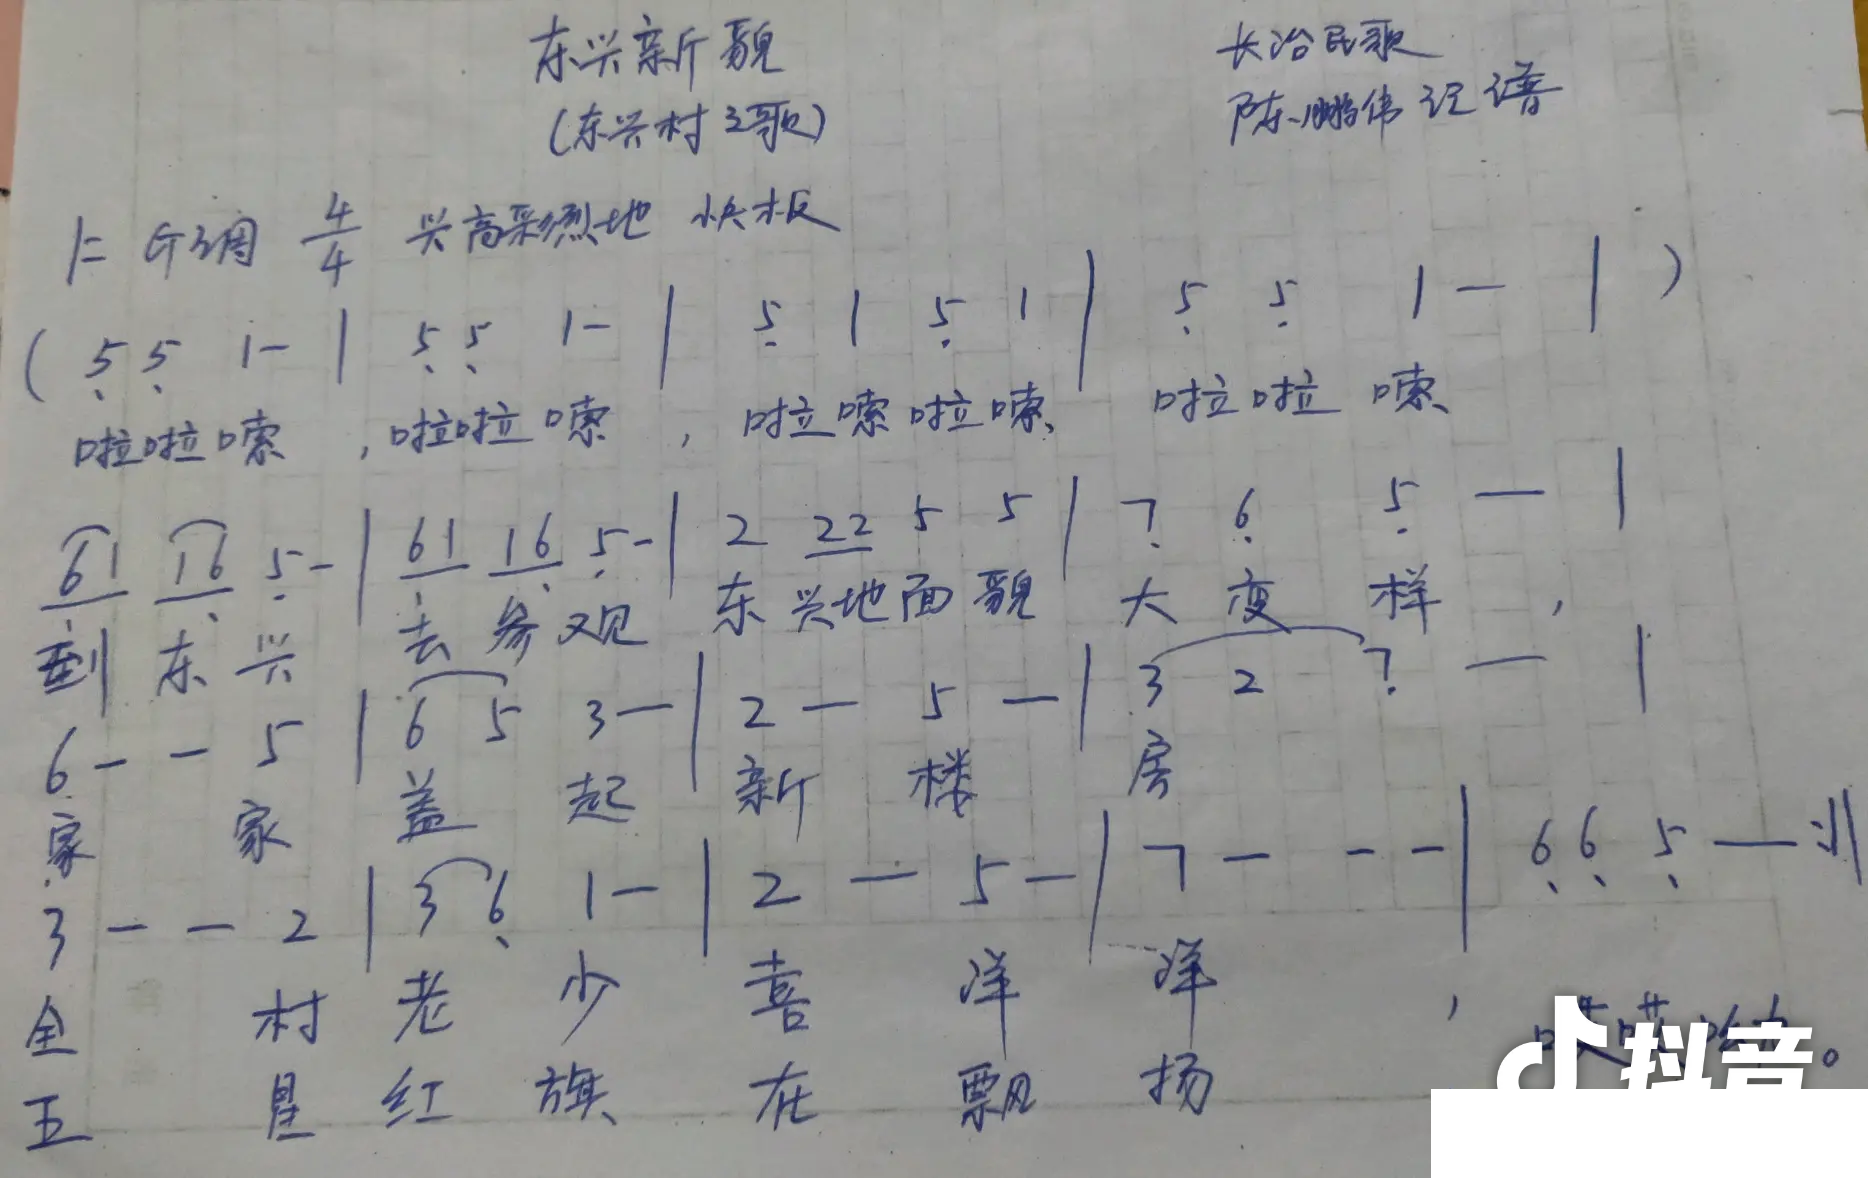 东兴新貌
(东兴村之歌)
长治民歌
陈鹏伟记谱
1=G调 4/4 兴高采烈地 快板
( 5̣ 5̣ 1 - | 5̣ 5̣ 1 - | 5̣ 1 5̣ 1 | 5̣ 5̣ 1 - | )
啦啦嗦,啦啦嗦,啦嗦啦嗦、啦啦嗦、
6̣1 16̣ 5̣ - | 6̣1 16̣ 5̣ - | 2 22 5 5 | 7̣ 6̣ 5̣ - |
到东兴去参观东兴地面貌大变样,
6 - - 5 | 6 5 3 - | 2 - 5 - | 3 2 7̣ - |
家家盖起新楼房
3 - - 2 | 3 6̣ 1 - | 2 - 5 - | 7 - - - | 6̣ 6̣ 5̣ - :||
全村老少喜洋洋,
五星红旗在飘扬
抖音